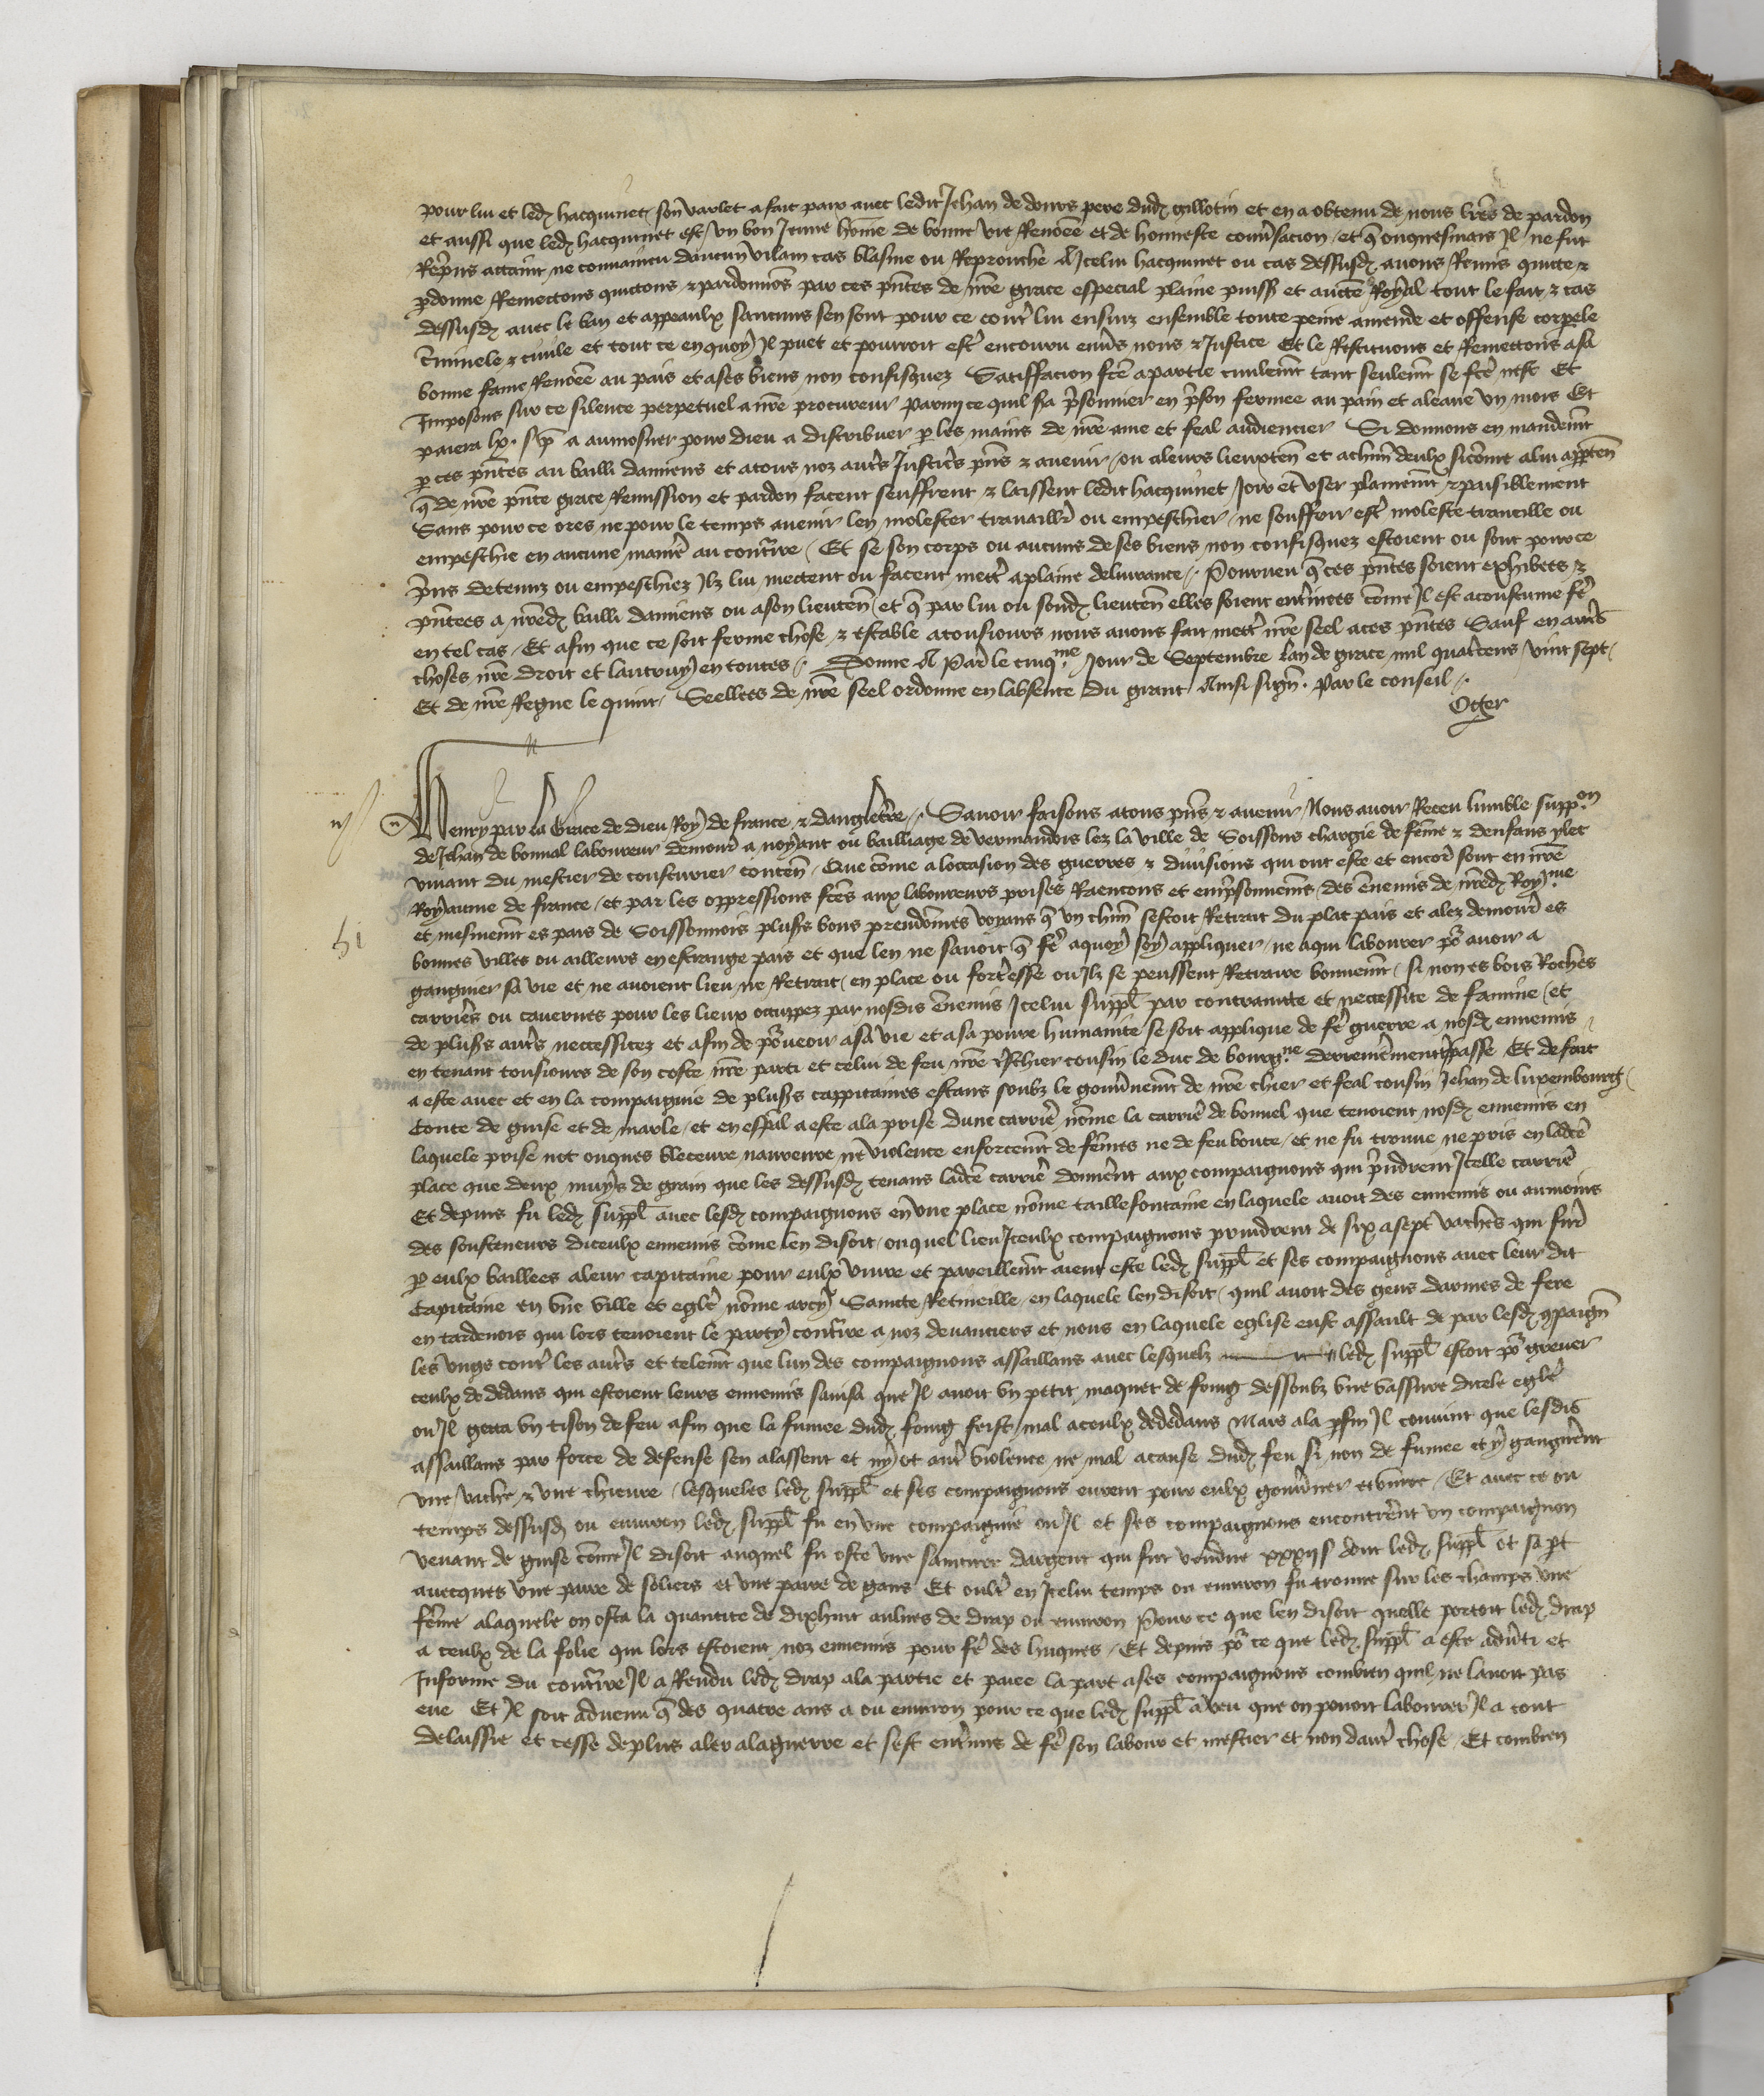 pour lui et led hacquinet son varlet a fait paix avec ledit Jehan de dours pere dud gillotin et en a obtenu de nous lres de pardon
et aussi que led hacquinet est un bon jeune home de bonne vie Renomee et de honneste conversacion et q onquesmais Il ne fut
Repris attaint ne convaincu daucun vilain cas blasme ou Reprouche A Icelui hacquinet ou cas dessusd avons Remis quitte &
pdonne Remectons quictons & pardonnos par ces pntes de nre grace especial plaine puiss et aucte Royal tout le fait & cas
dessusd avec le ban et appeaulx saucuns sen sont pour ce cont lui ensuiz ensemble toute peine amende et offense corpele
criminele & civile et tout ce en quoy Il puet et pourroit est encouru envs nous & Justice Et le Restituons et Remettons a sa
bonne fame Renomee au pais et a ses biens non confisquez Satiffacion fce a partie civilemt tant seulemt se fce nest Et
Imposons sur ce silence perpetuel a nre procureur parmy ce quil sa prisonnier en pson fermee au pain et a leaue un mois Et
paiera lx s p a aumosner pour dieu a distribuer p les mains de nre ame et feal audiencier Si donnons en mandemt
p ces pntes au bailli damiens et a tous noz autrs Justiciers pns & avenir ou a leurs lieuxten et a chun deulx sicome a lui apparten
q de nre pnte grace Remission et pardon facent seuffrent & laissent ledit hacquinet Joir et user plainemt & paisiblement
Sans pour ce ores ne pour le temps avenir len molester travaillr ou empeschier ne souffrir est moleste traveille ou
empeschie en aucune manire au contraire Et se son corps ou aucuns de ses biens non confisquez estoient ou sont pour ce
prins detenuz ou empeschiez Ilz lui mectent ou facent mett a plaine delivrance Pourveu q ces pntes soient exhibees &
pntees a nred bailli damiens ou a son lieuten et q par lui ou sond lieuten elles soient enterinees come Il est acoustume fe
en tel cas Et afin que ce soit ferme chose & estable a tousiours nous avons fait mett nre seel a ces pntes Sauf en autrs
choses nre droit et lautruy en toutes Donne A Paris le cinqme Jour de Septembre lan de grace mil quatrecens vint sept
Et de nre Regne le quint Seellees de nre seel ordonne en labsence du grant Ainsi sign Par le conseil
Oger
Henry par la Grace de dieu Roy de france & dangleterre Savoir faisons a tous pns & avenir Nous avoir Receu lumble suppon
de Jehan de bonnal laboureur demour a noyant ou bailliage de vermandois lez la ville de Soissons chargie de feme & denfans ylec
vivant du mestier de cousturier conten Que come a loccasion des guerres & divisions qui ont este et encor sont en nre
Royaume de france et par les oppressions fces aux laboureurs prises Raencons et empsonnemens des ennemis de nred Royme
et mesmemt es pais de Soissonnois plusrs bons preudomes voyans q un chun sestoit Retrait du plat pais et alez demour es
bonnes villes ou ailleurs en estrange pais et que len ne savoit q fe a quoy soy appliquer ne a qui labourer por avoir a
gaingnier sa vie et ne avoient lieu ne Retrait en place ou forteresse ou Ilz se peussent Retraire bonnemt si non es bois Roches
carriers ou cavernes pour les lieux occuppez par nosdis ennemis Icelui suppl par contrainte et neccessite de famine et
de plusrs autrs neccessitez et afin de porveoir a sa vie et a sa povre humanite se soit applique de fe guerre a nosd ennemis
en tenant tousiours de son coste nre parti et celui de feu nre tschier cousin le duc de bourgne derrenierement tpasse Et de fait
a este avec et en la compaignie de plusrs cappitaines estans soubz le gouvernemt de nre chier et feal cousin Jehan de luxembourg
Conte de guise et de marle et en espal a este a la prise dune carriere nomee la carriere de bonnel que tenoient nosd ennemis en
laquele prise not onques bleceure navreure ne violence enforcemt de femes ne de feu boute et ne fu trouve ne pris en ladce
place que deux muys de grain que les dessusd tenans ladce carriere donnernt aux compaignons qui prindrent Icelle carriere
Et depuis fu led suppl avec lesd compaignons en une place nomee taillefontaine en laquele avoit des ennemis ou aumoins
des sousteneurs diceulx ennemis come len disoit ouquel lieu Iceulx compaignons prindrent de six a sept vaches qui fur
p eulx baillees a leur capitaine pour eulx vivre et pareillemt aient este led suppl et ses compaignons avec leur dit
Capitaine en une ville et eglise nomee arcy Saincte Retiueille en laquele len disoit quil avoit des gens darmes de fere
en tardenois qui lors tenoient le party contraire a noz devanciers et nous en laquele eglise eust assault de par lesd conpaign
les ungs cont les autrs et telemt que lun des compaignons assaillans avec lesquelz led suppl estoit por grever
ceulx de dedans qui estoient leurs ennemis savisa que Il avoit un petit maquet de foing dessoubz une vassure dicele eglise
ou Il getta un tison de feu afin que la fumee dud foing feist mal a ceulx de dedans Mais a la pfin Il convint que lesdis
assaillans par force de defense sen alassent et ny ot autr violence ne mal a cause dud feu si non de fumee et y gaignernt
une vache & une chievre lesqueles led suppl et ses compaignons eurent pour eulx gouverner et vivre Et avec ce ou
temps dessusd ou environ led suppl fu en une compaignie ou Il et ses compaignons encontrernt un compaignon
venant de guise come Il disoit auquel fu oste une sainture dargent qui fut vendue xxxii s dont led suppl ot sa pt
avecques une paire de soliers et une paire de gans Et oultr en Icelui temps ou environ fu trouvee sur les champs une
feme a laquele on osta la quantite de dixhuit aulnes de drap ou environ Pour ce que len disoit quelle portoit led drap
a ceulx de la folie qui lors estoient noz ennemis pour fe des huques Et depuis por ce que led suppl a este adverti et
Informe du contraire Il a Rendu led drap a la partie et paiee la part a ses compaignons combien quil ne lavoit pas
eue Et Il soit advenu q des quatre ans a ou environ pour ce que led suppl a veu que on povoit labourer Il a tout
delaissie et cesse de plus aler a la guerre et sest entremis de fe son labour et mestier et non dautr chose Et combien